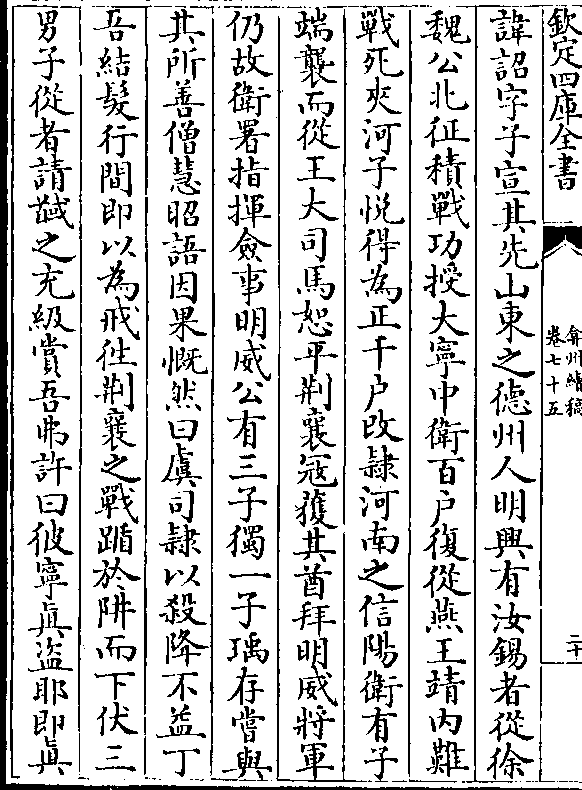 欽定四庫全書
弇州續稿
卷七十五
二十
諱詔字子宣其先山東之德州人明興有汝錫者從徐
魏公北征積戰功授大寧中衛百戶復從燕王靖内難
戰死夾河子悅得為正千户改隷河南之信陽衛有子
端襲而從王大司馬恕平荆襄冦獲其酋拜明威將軍
仍故衛署指揮僉事明威公有三子獨一子瑀存嘗與
其所善僧慧昭語因果慨然曰虞司隷以殺降不益丁
吾結髮行間即以為戒往荆襄之戰踊於阱而下伏三
男子從者請馘之充級賞吾弗許曰彼寧真盗耶即真